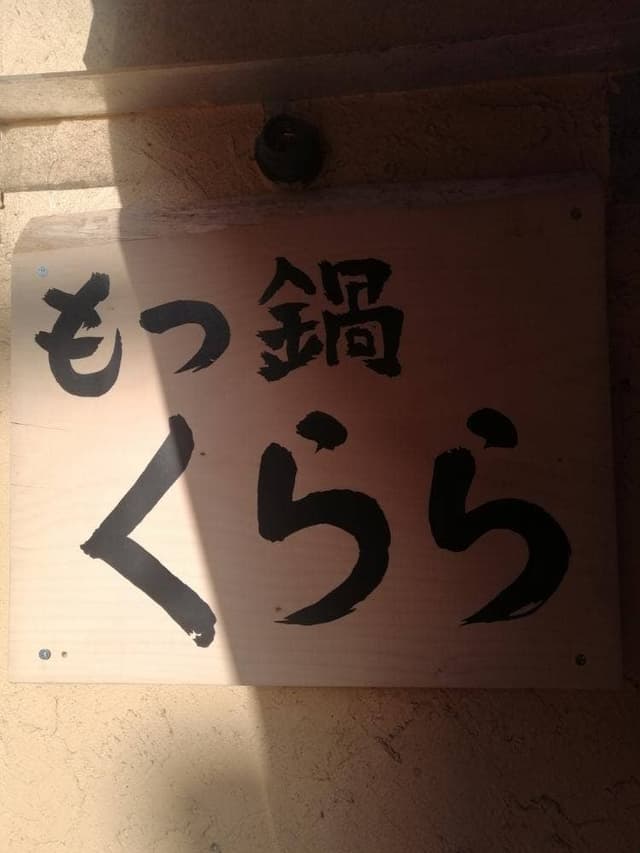 もつ鍋
くらら